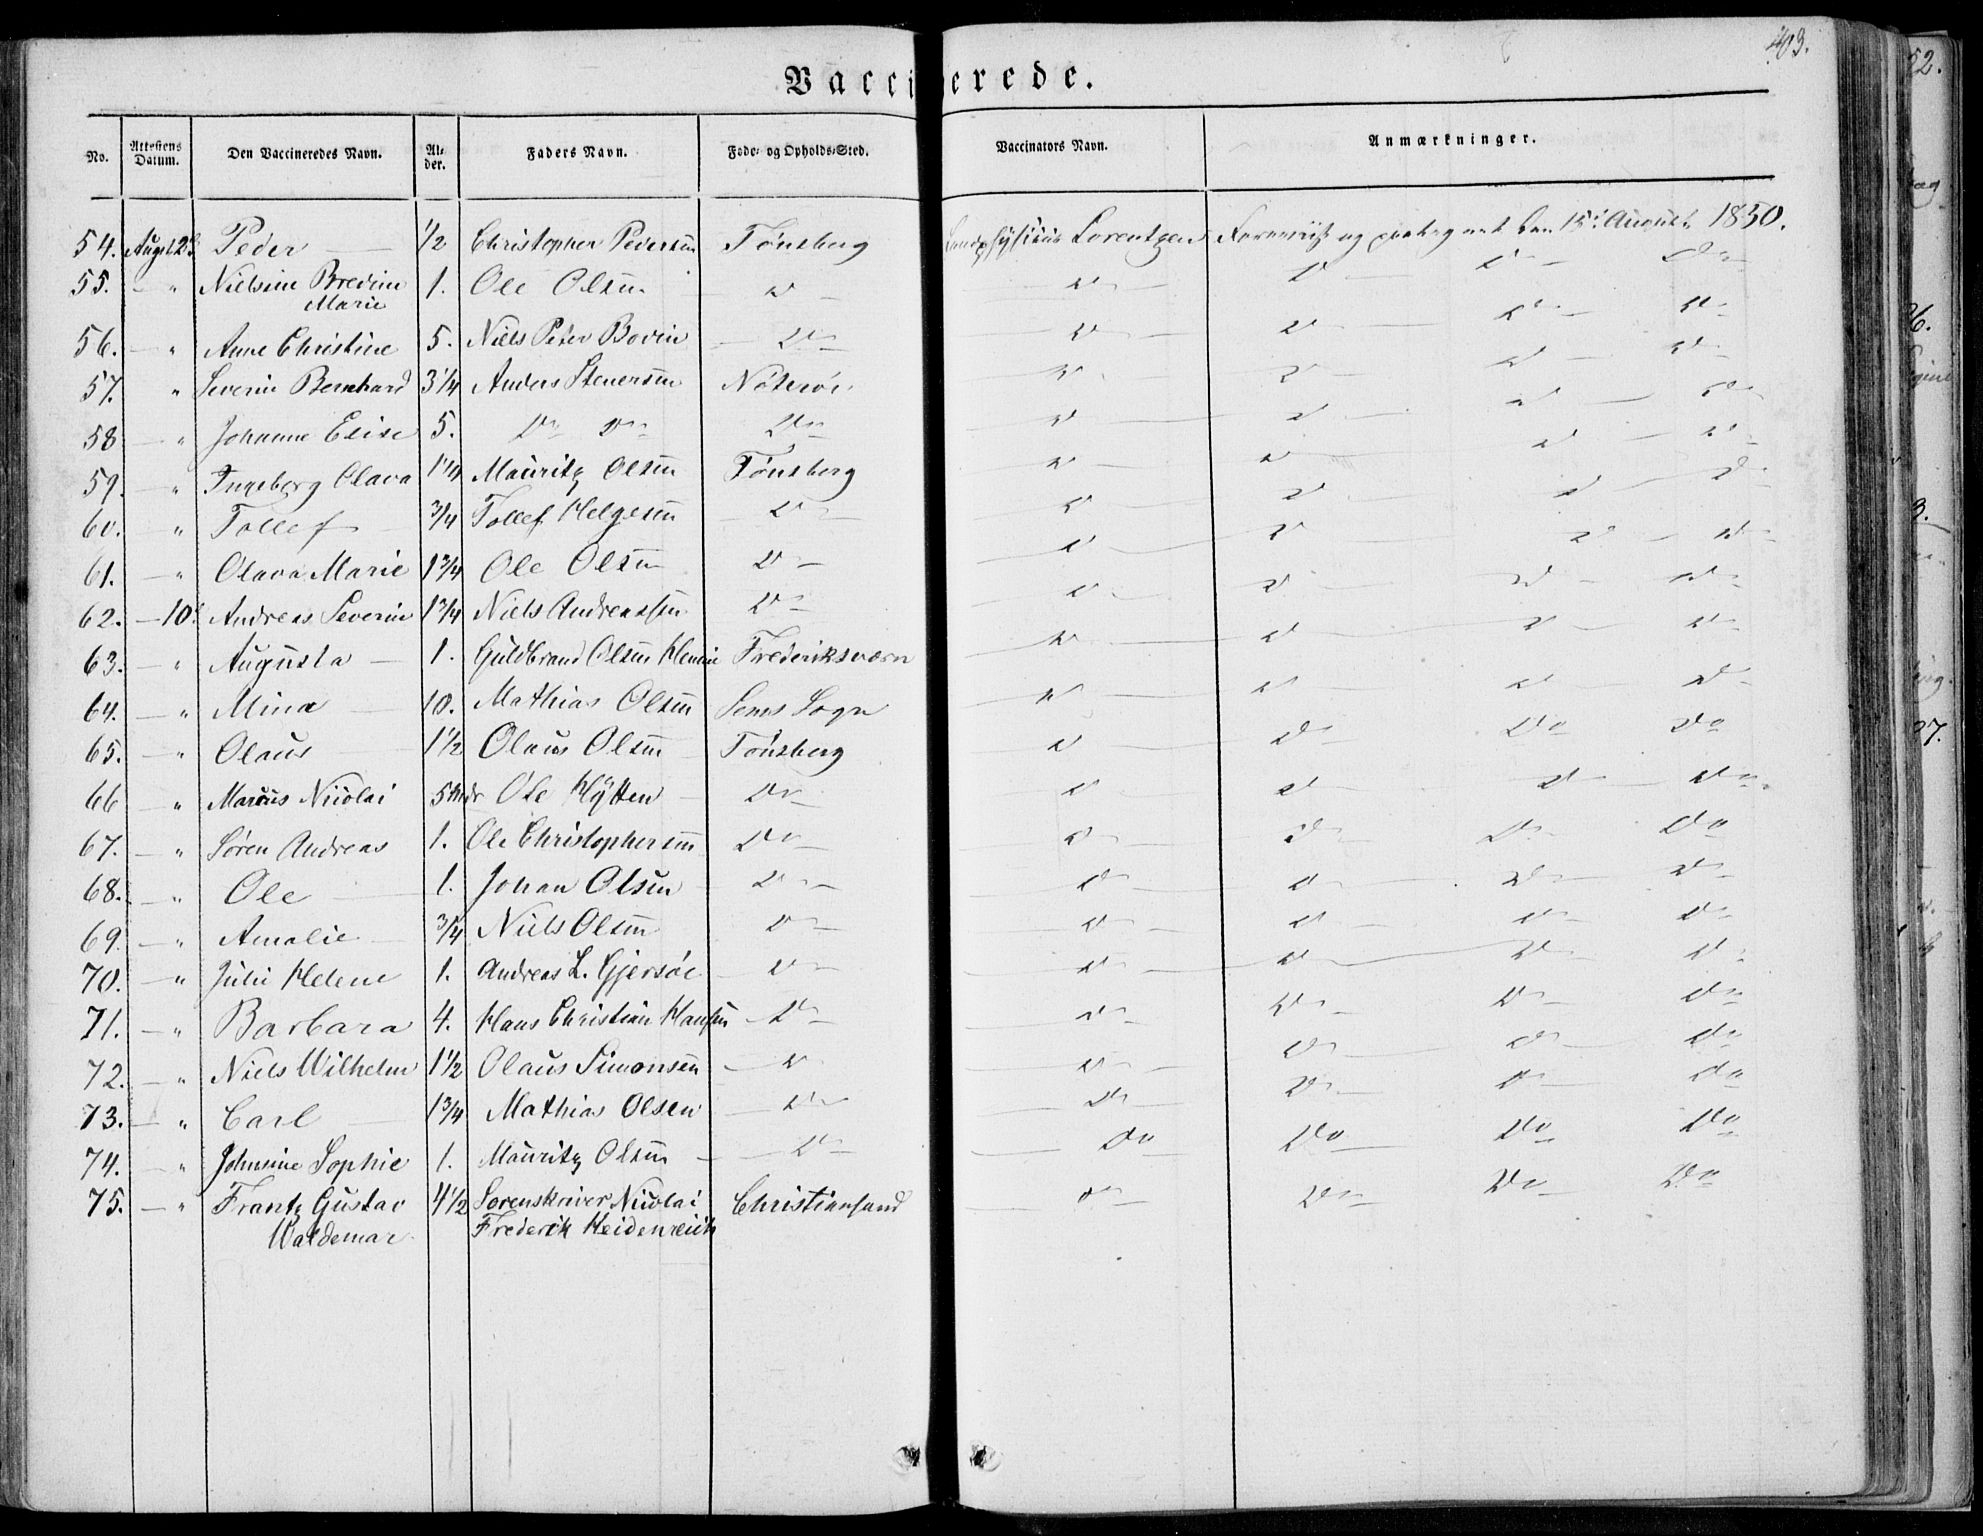 403.
Vaccinerede.
No. Attestens Datum. Den Vaccineredes Navn. Alder. Faders Navn. Føde- og Opholds-Sted. Vaccinators Navn. Anmærkninger.
54. Augst 2d Peder 1/2 Christopher Pedersen Tønsberg Landphysicus Lorentzen Foreviist og paategnet den 15de August 1850.
55. — " Nielsine Bredine 1. Ole Olsen Do Do Do Do Do
Marie
56. — " Anne Christine 5. Niels Peter Bovin Do Do Do Do Do
57. " Severin Bernhard 3 1/4 Anders Stenersen Nøterøe Do Do Do Do
58 — " Johanne Elise 5. Do Do Do Do Do Do Do
59. — " Ingeborg Olava 1 1/4 Mauritz Olsen Tønsberg Do Do Do Do
60. " Tollef 3/4 Tollef Helgesen Do Do Do Do Do
61. — " Olava Marie 1 3/4 Ole Olsen Do Do Do Do Do
62. — 10d Andreas Severin 1 3/4 Niels Andreassen Do Do Do Do Do
63. — " Augusta 1. Guldbrand Olsen Frederiksværn Do Do Do Do
64. — " Mina 10. Mathias Olsen Sems Sogn Do Do Do Do
65. — " Olaus 1 1/2 Olaus Olsen Tønsberg Do Do Do Do
66 — " Marcus Nicolai 5 Mdr Ole Hÿtten Do Do Do Do Do
67. — " Søren Andreas 1. Ole Christophersen Do Do Do Do Do
68. — " Ole 1. Johan Olsen Do Do Do Do Do
69. — " Amalie 3/4 Niels Olsen Do Do Do Do Do
70. — " Julie Helene 1. Andreas L. Gjersøe Do Do Do Do Do
71. — " Barbara 4. Hans Christian Hansen Do Do Do Do Do
72. — " Niels Wilhelm 1 1/2 Olaus Simonsen Do Do Do Do Do
73. — " Carl 1 3/4 Mathias Olsen Do Do Do Do Do
74. — " Johnsine Sophie 1. Mauritz Olsen Do Do Do Do Do
75. — " Frantz Gustav 4 1/2 Sorenskriver Nicolai Christiansand Do Do Do Do
Waldemar Frederik Heidenreich